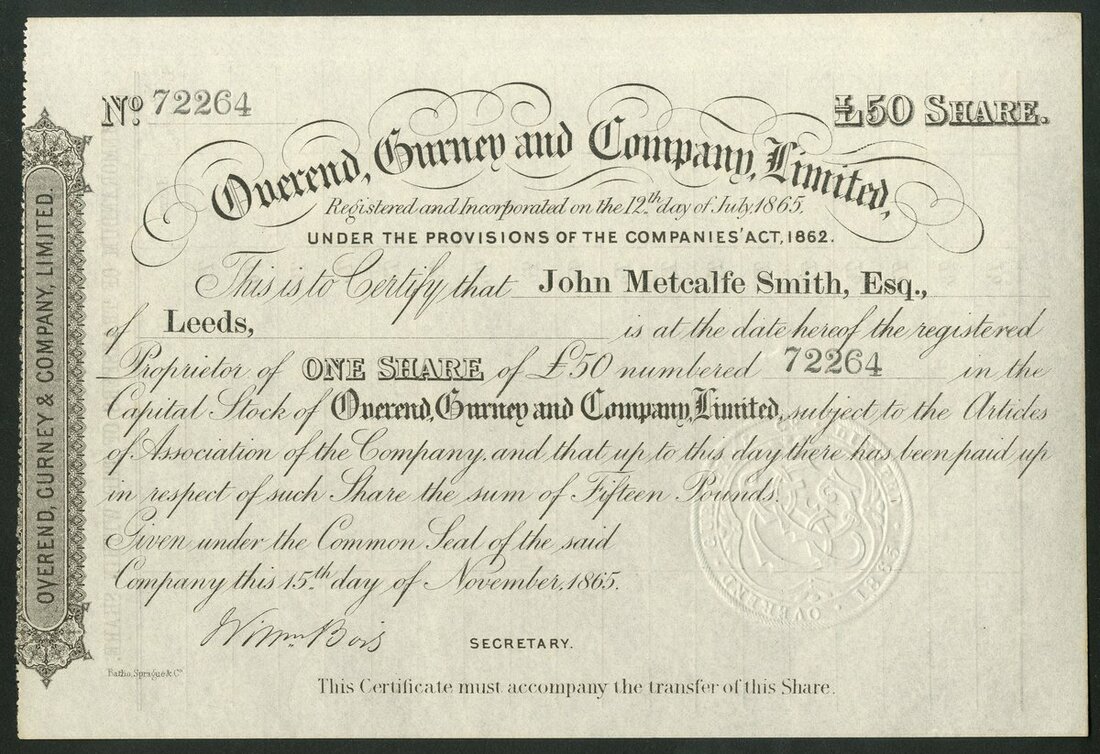 No. 72264
£50 SHARE.
OVEREND, GURNEY & COMPANY, LIMITED.
Overend, Gurney and Company, Limited,
Registered and Incorporated on the 12th day of July, 1865,
UNDER THE PROVISIONS OF THE COMPANIES' ACT, 1862.
This is to Certify that John Metcalfe Smith, Esq.,
of Leeds, is at the date hereof the registered
Proprietor of ONE SHARE of £50 numbered 72264 in the
Capital Stock of Overend, Gurney and Company, Limited, subject to the Articles
of Association of the Company, and that up to this day there has been paid up
in respect of such Share the sum of Fifteen Pounds.
Given under the Common Seal of the said
Company this 15th day of November, 1865.
SECRETARY.
Batho, Sprague & Co
This Certificate must accompany the transfer of this Share.